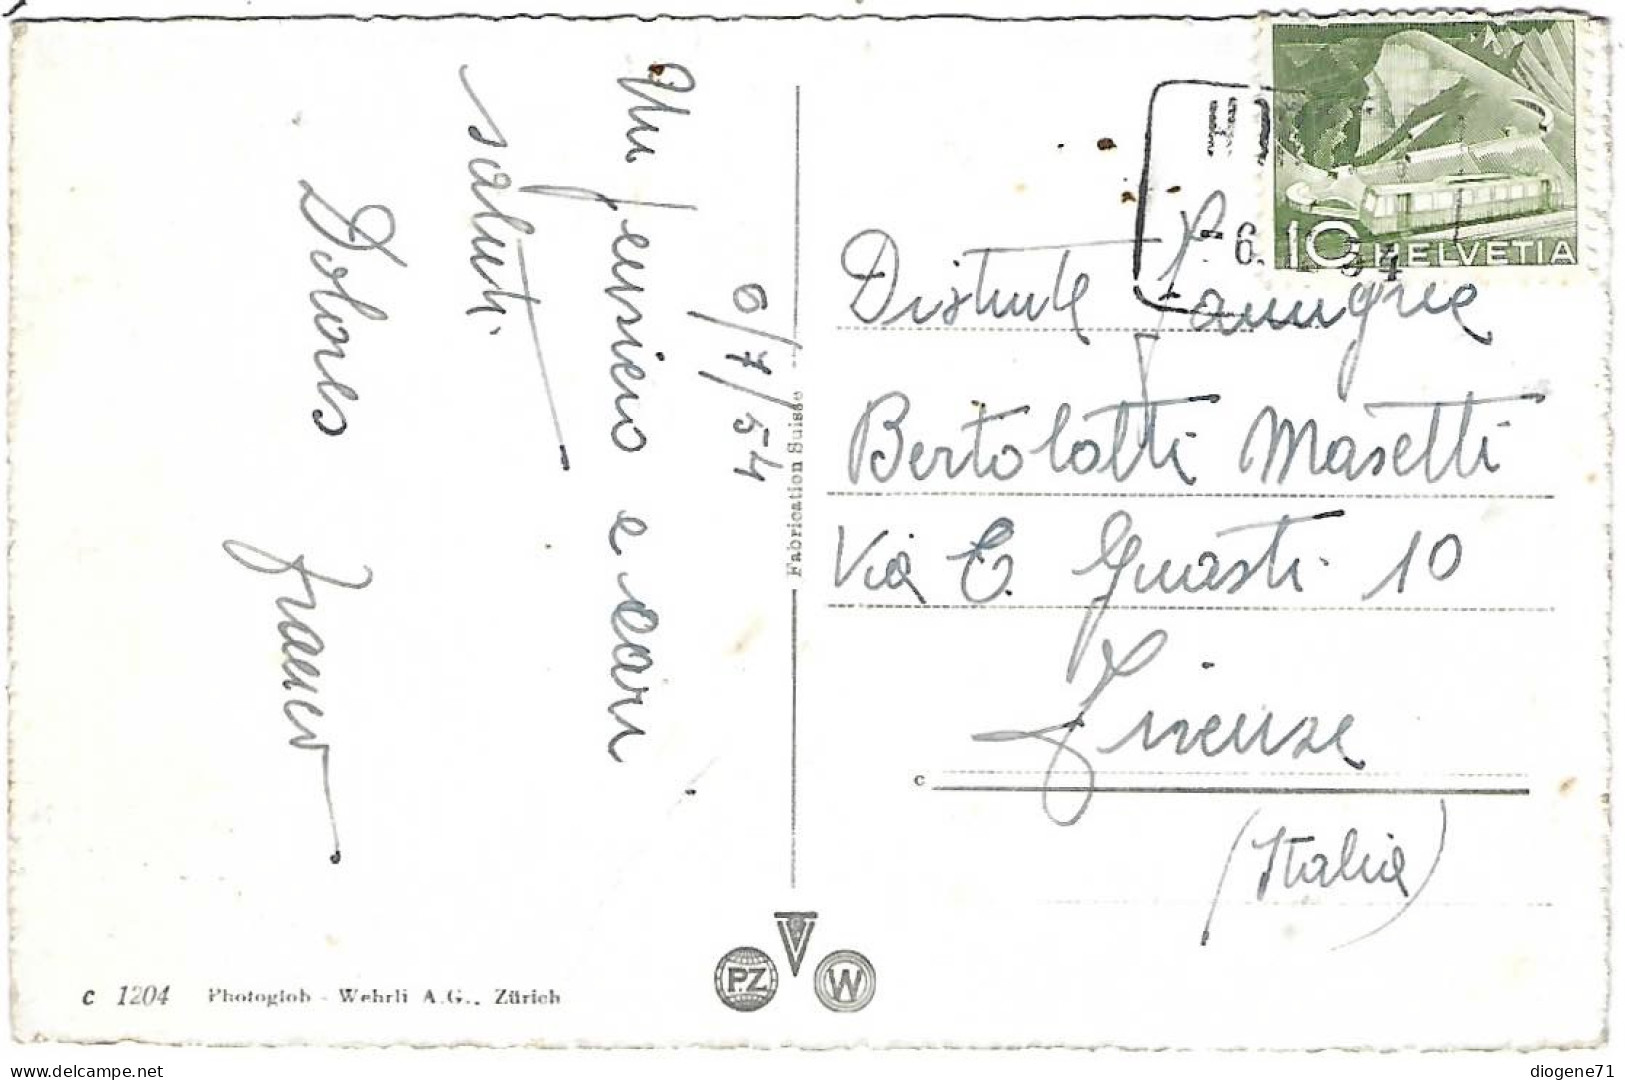 6/7/54
Un pensiero e cari
saluti.
Dolores
Franco
Fabrication Suisse
- 6. 54
10 HELVETIA
Distinte Famiglie
Bertolotti Masetti
Via E. Guasti 10
Firenze
c
(Italia)
PZ V W
c 1204 Photoglob - Wehrli A.G., Zürich
delcampe.net
diogene71